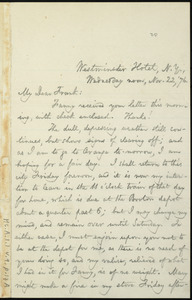 Westminster Hotel, N.Y.,
Wednesday noon, Nov. 22, '76.
My Dear Frank:
Fanny received your letter this morn-
ing, with check enclosed. Thanks!
The dull, depressing weather still con-
tinues, but shows signs of clearing off; and
as I am to go to Orange to-morrow, I am
hoping for a fair day. I shall return to this
city Friday forenoon, and it is now my inten-
tion to leave in the 11 o'clock train of that day
for home, which is due at the Boston depot
about a quarter past 6; but I may change my
mind, and remain over until Saturday. In
either case, I must enjoin upon you not to
be at the depot for me, as there is no need of
your doing so, and my valise, relieved of what
I had in it for Fanny, is of no weight. Harry
might make a fire in my stove Friday after-